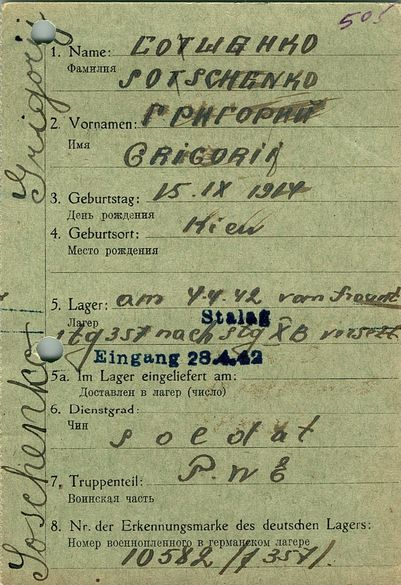 505
1. Name: СОТШЕНКО
Фамилия
SOTSCHENKO
2. Vornamen: ГРИГОРИЙ
Имя
GRIGORII
3. Geburtstag: 15. IX 1914
День рождения
4. Geburtsort: Kiew
Место рождения
5. Lager: am 4.4.42 vom
Лагер
Stalag
357 nach Stg X B versetzt
Eingang 28.4.42
5a. Im Lager eingeliefert am:
Доставлен в лагер (число)
6. Dienstgrad:
Чин
soldat
7. Truppenteil:
Воинская часть
8. Nr. der Erkennungsmarke des deutschen Lagers:
Номер военнопленного в германском лагере
10582 /357/.
Soschenko Grigorij